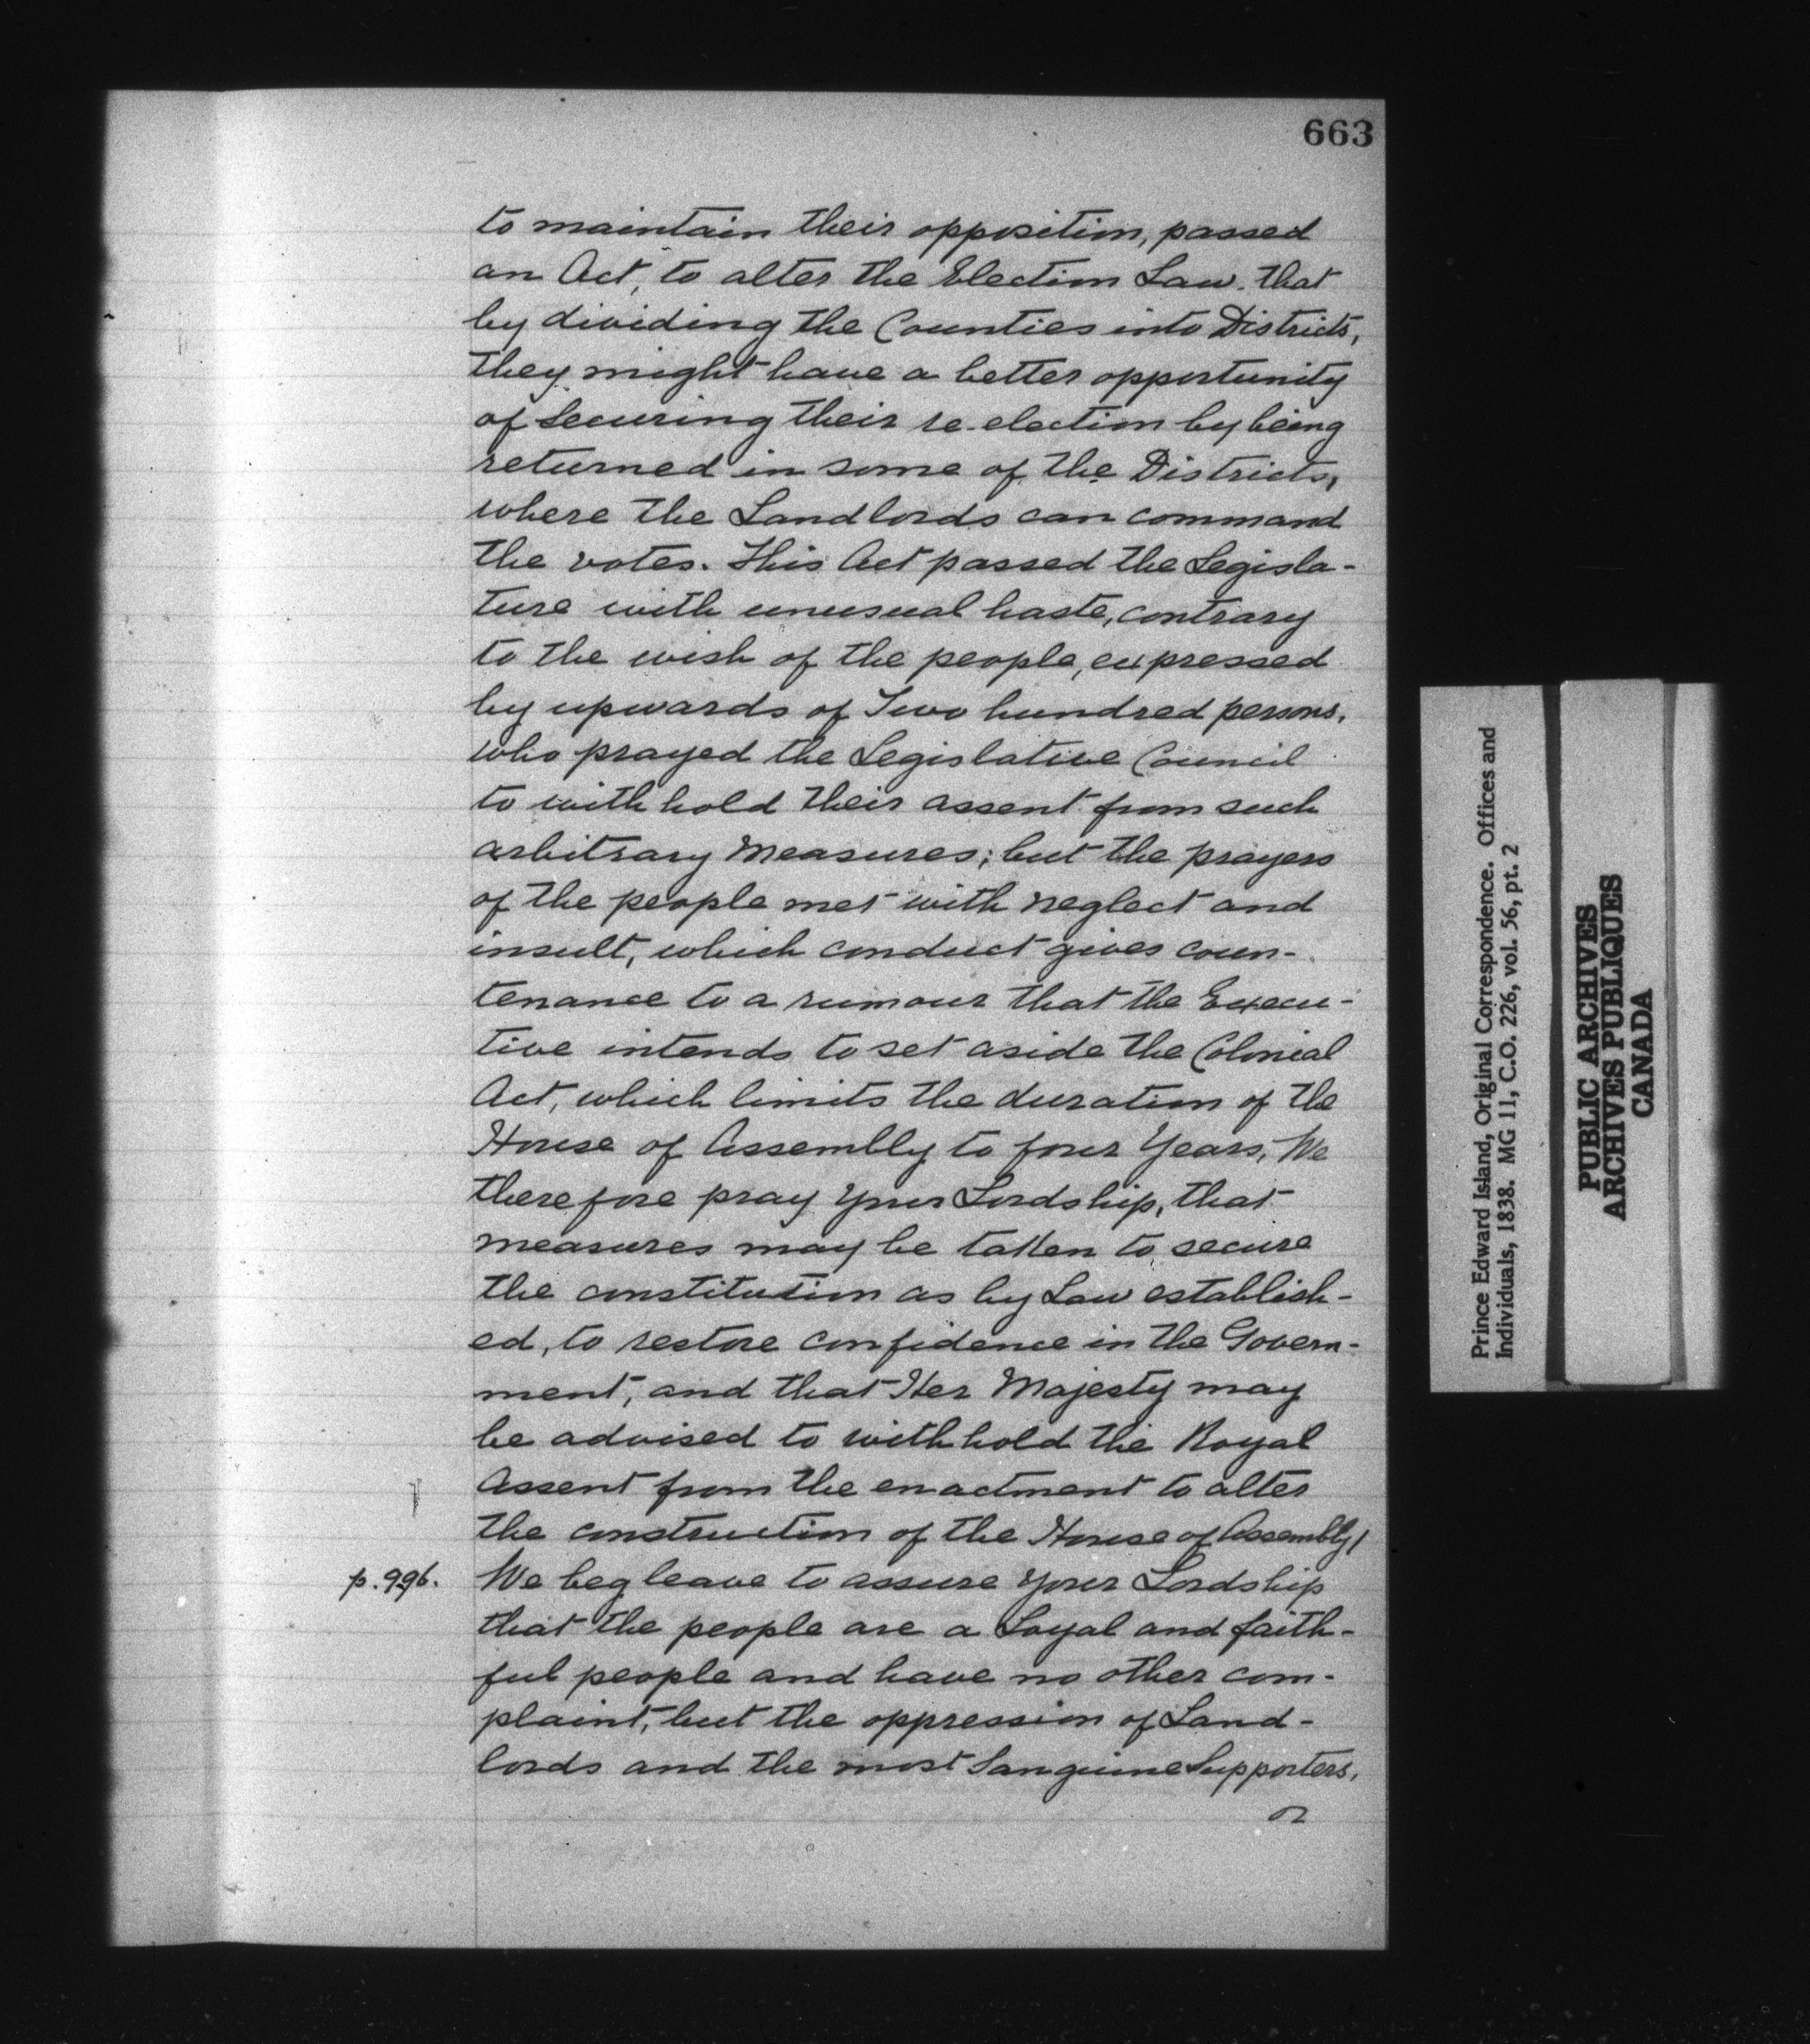 663
to maintain their opposition, passed
an Act, to alter the Election Law. that
by dividing the Counties into Districts,
they might have a better opportunity
of Securing their re-election by being
returned in some of the Districts,
where the Landlords can command
the votes. This Act passed the Legisla-
ture with unusual haste, contrary
to the wish of the people, expressed
by upwards of Two hundred persons,
who prayed the Legislative Council
to withhold their assent from such
arbitrary Measures; but the prayers
of the people met with neglect and
insult, which conduct gives coun-
tenance to a rumour that the Execu-
tive intends to set aside the Colonial
Act, which limits the duration of the
House of Assembly to four Years, We
therefore pray Your Lordship, that
measures may be taken to secure
the constitution as by Law establish-
ed, to restore confidence in the Govern-
ment, and that Her Majesty may
be advised to withhold the Royal
Assent from the enactment to alter
the construction of the House of Assembly/
p. 996. We beg leave to assure Your Lordship
that the people are a Loyal and faith-
ful people and have no other com-
plaint, but the oppression of Land-
lords and the most Sanguine Supporters,
or
Prince Edward Island, Original Correspondence. Offices and
Individuals, 1838. MG 11, C.O. 226, vol. 56, pt. 2
PUBLIC ARCHIVES
ARCHIVES PUBLIQUES
CANADA